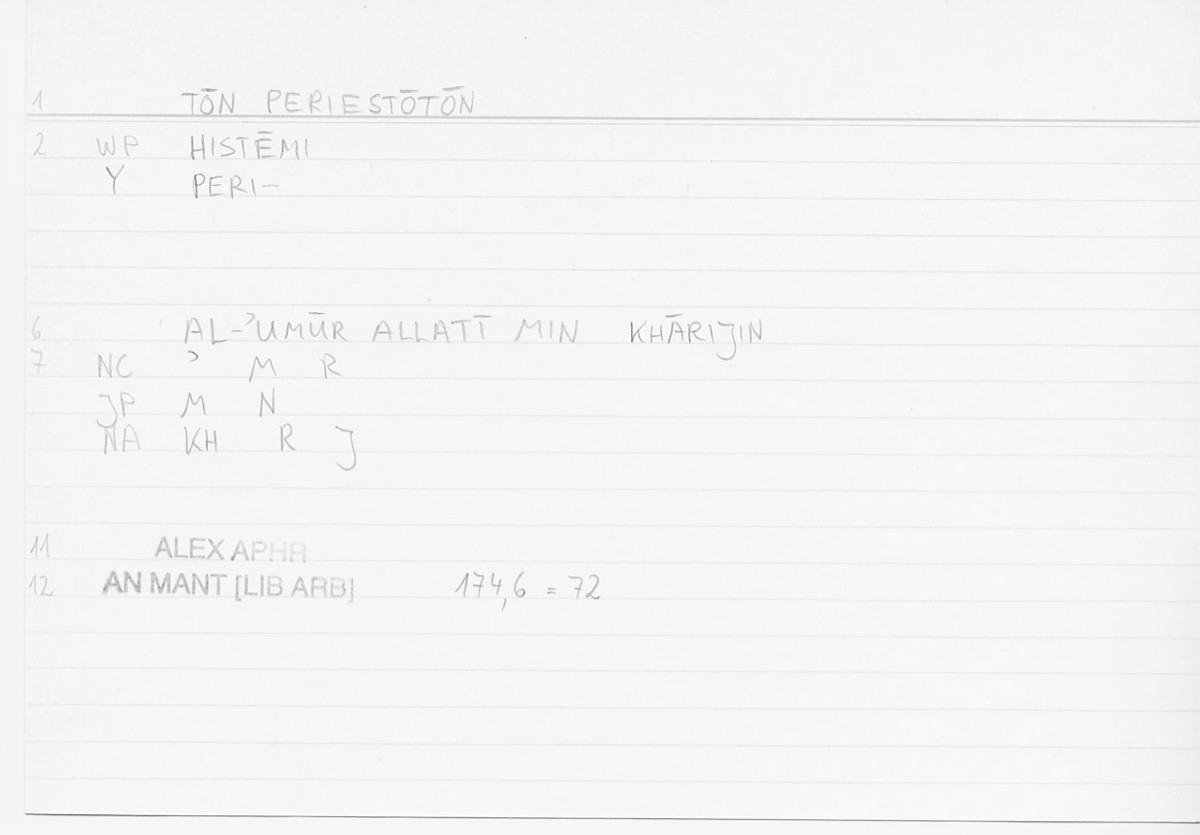 1 TŌN PERIESTŌTŌN
2 WP HISTĒMI
Y PERI–
6 AL-ʾUMŪR ALLATĪ MIN KHĀRIJIN
7 NC ʾ M R
JP M N
NA KH R J
11 ALEX APHR
12 AN MANT [LIB ARB] 174,6 = 72